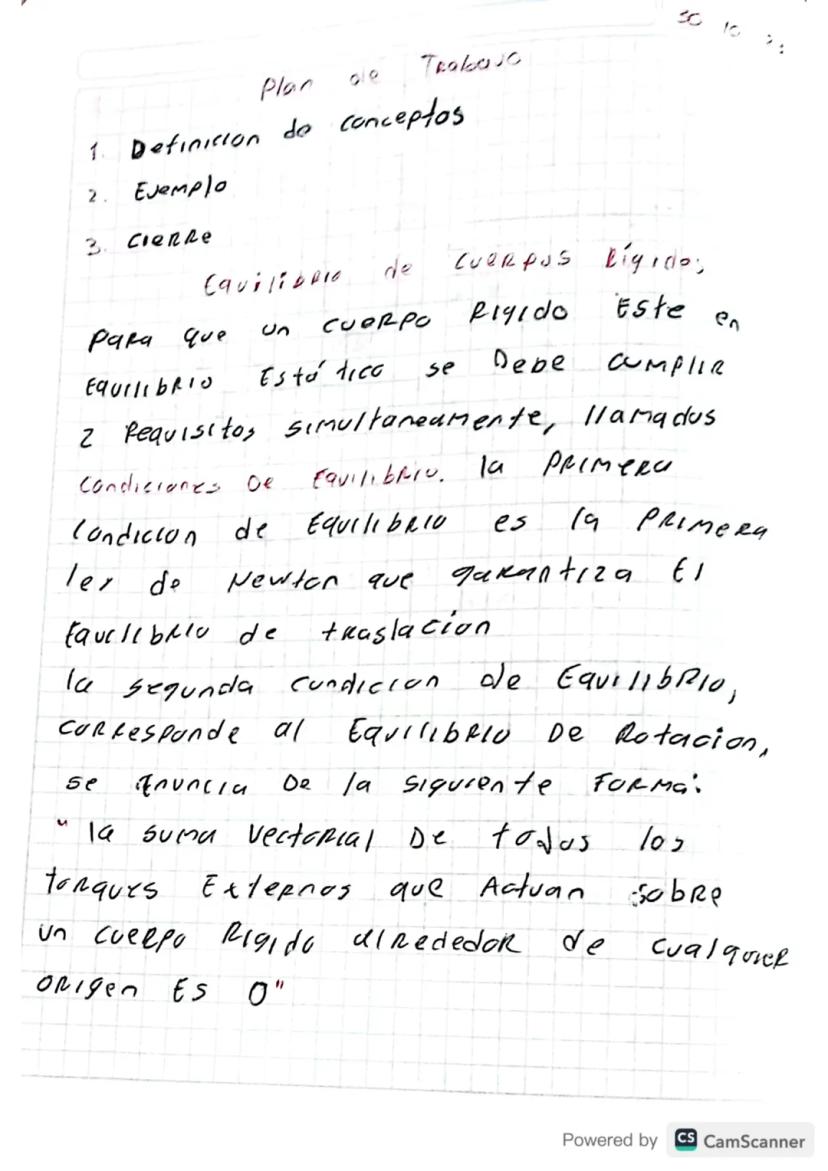 Plan de Trabajo
1. Definicion de conceptos
2. Ejemplo
3. Cierre
Equilibrio de Cuerpos Rígidos
Para que un cuerpo Rigido Este en
Equilibrio Estático se Debe cumplir
2 Requisitos simultaneamente, llamados
Condiciones De Equilibrio. la Primera
Condicion de Equilibrio es la Primera
ley de Newton que garantiza El
Equilibrio de traslacion
la segunda condicion de Equilibrio,
Corresponde al Equilibrio De Rotacion,
se Enuncia De la siguiente Forma:
"la suma Vectorial De todos los
torques Externos que Actuan sobre
un cuerpo Rigido alrededor de cualquier
origen Es 0"
Powered by CS CamScanner